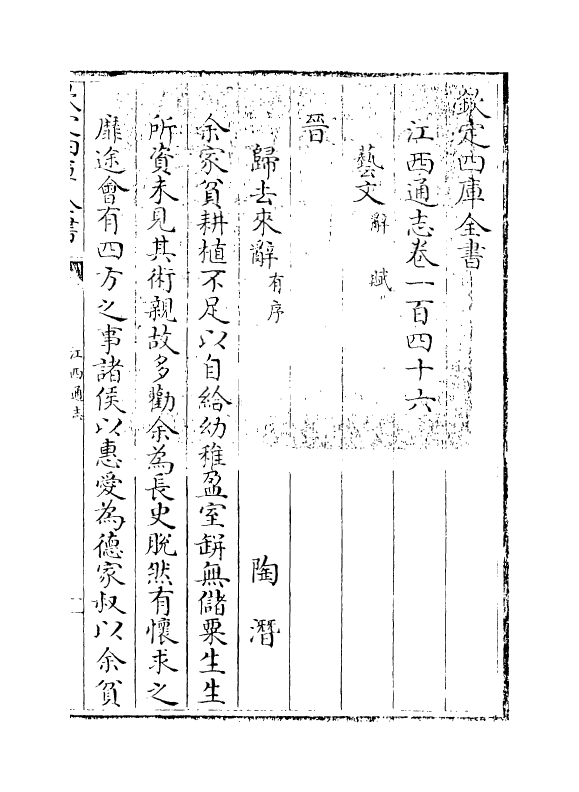 欽定四庫全書
江西通志卷一百四十六
藝文 辭 賦
晉
歸去來辭 有序 陶潛
余家貧耕植不足以自給幼稚盈室缾無儲粟生生
所資未見其術親故多勸余為長史脫然有懷求之
靡途會有四方之事諸侯以惠愛為德家叔以余貧
江西通志